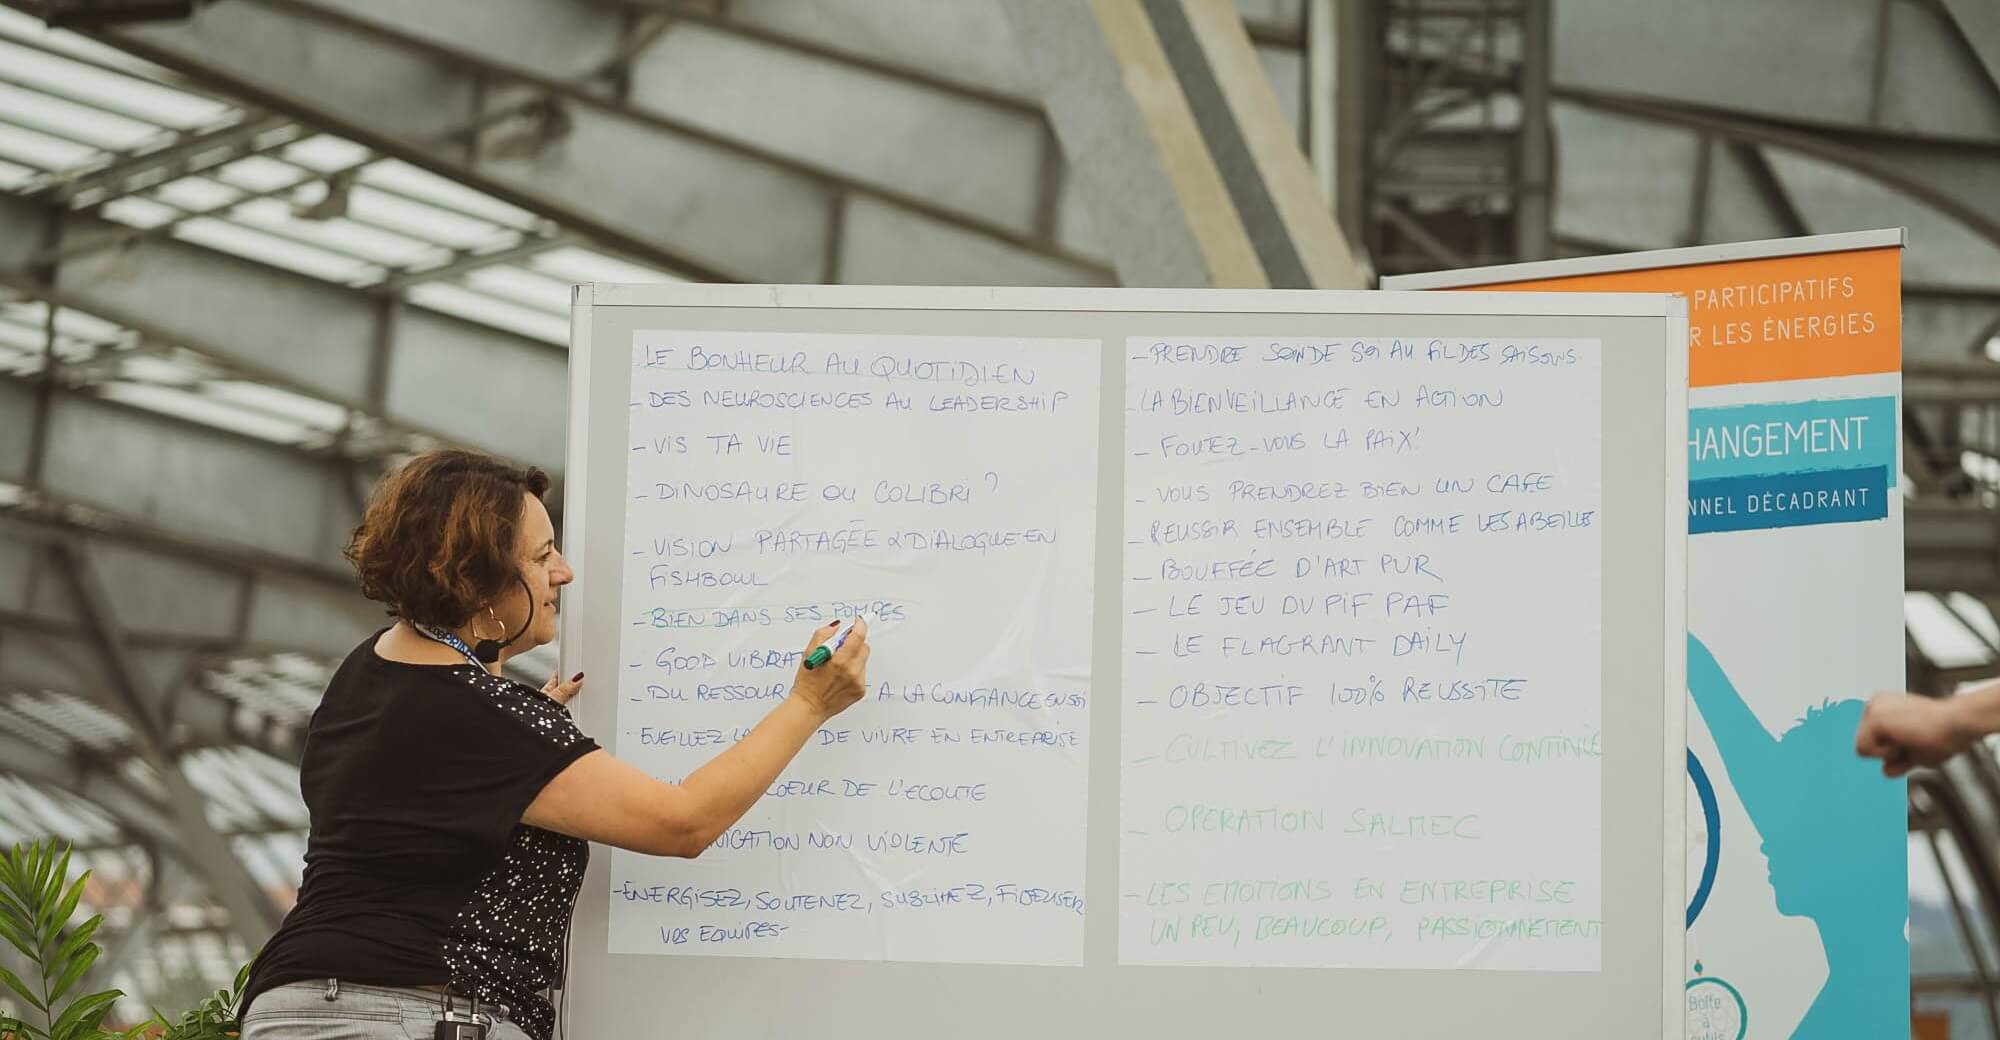 LE BONHEUR AU QUOTIDIEN
- DES NEUROSCIENCES AU LEADERSHIP
- VIS TA VIE
- DINOSAURE OU COLIBRI ?
- VISION PARTAGÉE & DIALOGUE EN
FISHBOWL
- BIEN DANS SES POMPES
- GOOD
- DU A LA CONFIANCE EN SOI
EVEILLEZ DE VIVRE EN ENTREPRISE
DE L'ECOUTE
NON VIOLENTE
- ENERGISEZ, SOUTENEZ, SUBLIMEZ, FIDELISER
VOS EQUIPES -
- PRENDRE SOIN DE SOI AU FIL DES SAISONS
- LA BIENVEILLANCE EN ACTION
- FOUTEZ-VOUS LA PAIX!
- VOUS PRENDREZ BIEN UN CAFE
- REUSSIR ENSEMBLE COMME LES ABEILLES
- BOUFFÉE D'ART PUR
- LE JEU DU PIF PAF
- LE FLAGRANT DAILY
- OBJECTIF 100% REUSSITE
- CULTIVEZ L'INNOVATION CONTINUE
- OPERATION SALMEC
- LES EMOTIONS EN ENTREPRISE
UN PEU, BEAUCOUP, PASSIONNEMENT
PARTICIPATIFS
R LES ÉNERGIES
HANGEMENT
NNEL DÉCADRANT
Boîte
à
outils